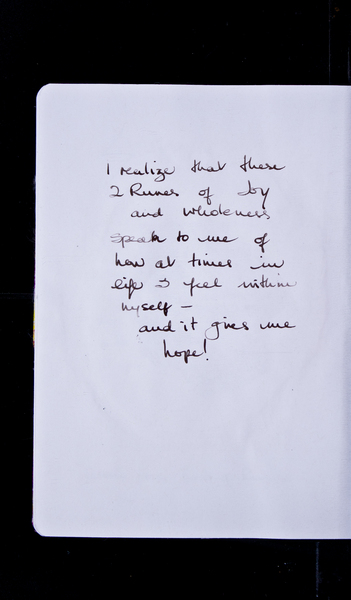 I realize that these
2 Runes of Joy
and wholeness
speak to me of
how at times in
life I feel within
myself –
and it gives me
hope!